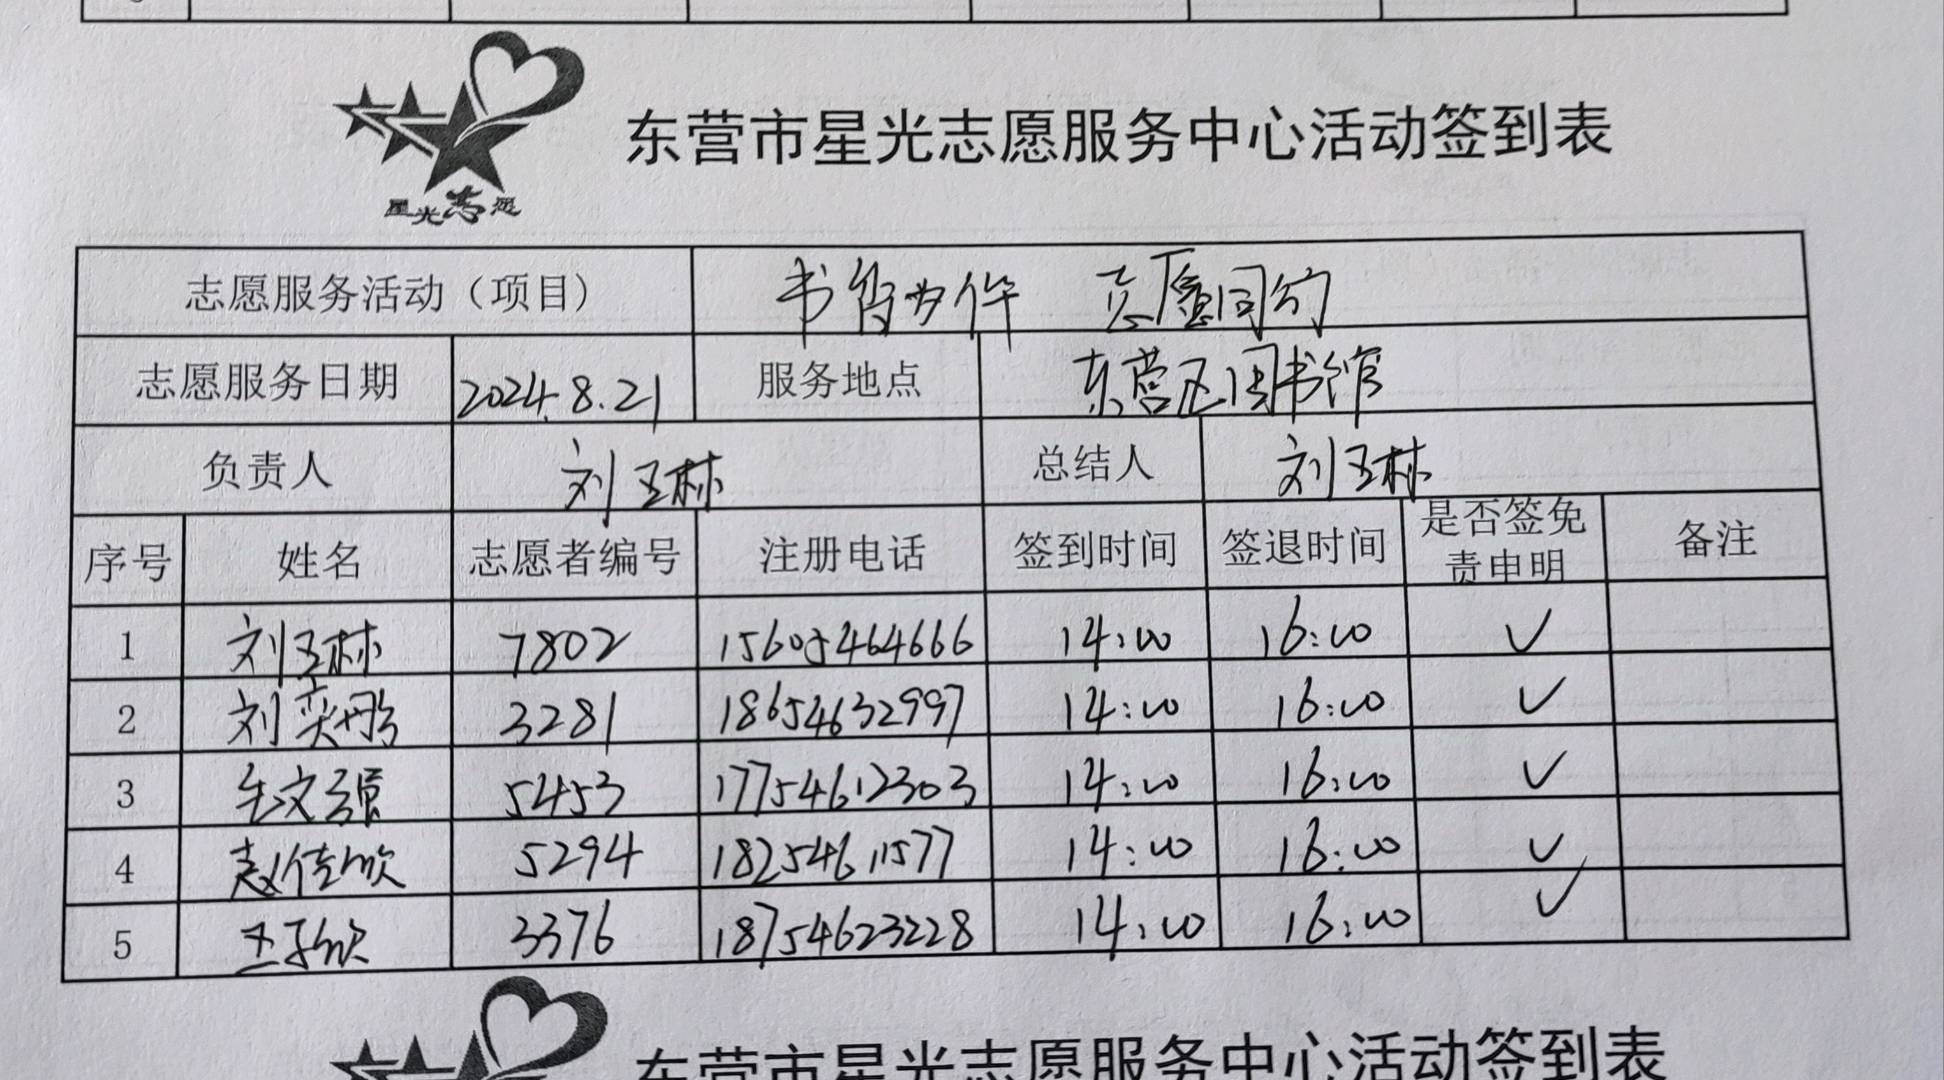 星光志愿
东营市星光志愿服务中心活动签到表
志愿服务活动（项目） 书香为伴 志愿同行
志愿服务日期 2024.8.21 服务地点 东营区图书馆
负责人 刘玉林 总结人 刘玉林
序号 姓名 志愿者编号 注册电话 签到时间 签退时间 是否签免责申明 备注
1 刘玉林 7802 15605464666 14:00 16:00 ✓
2 刘奕彤 3281 18654632997 14:00 16:00 ✓
3 5453 17754612303 14:00 16:00 ✓
4 赵佳欣 5294 18254611577 14:00 16:00 ✓
5 王子欣 3376 18754623228 14:00 16:00 ✓
东营市星光志愿服务中心活动签到表